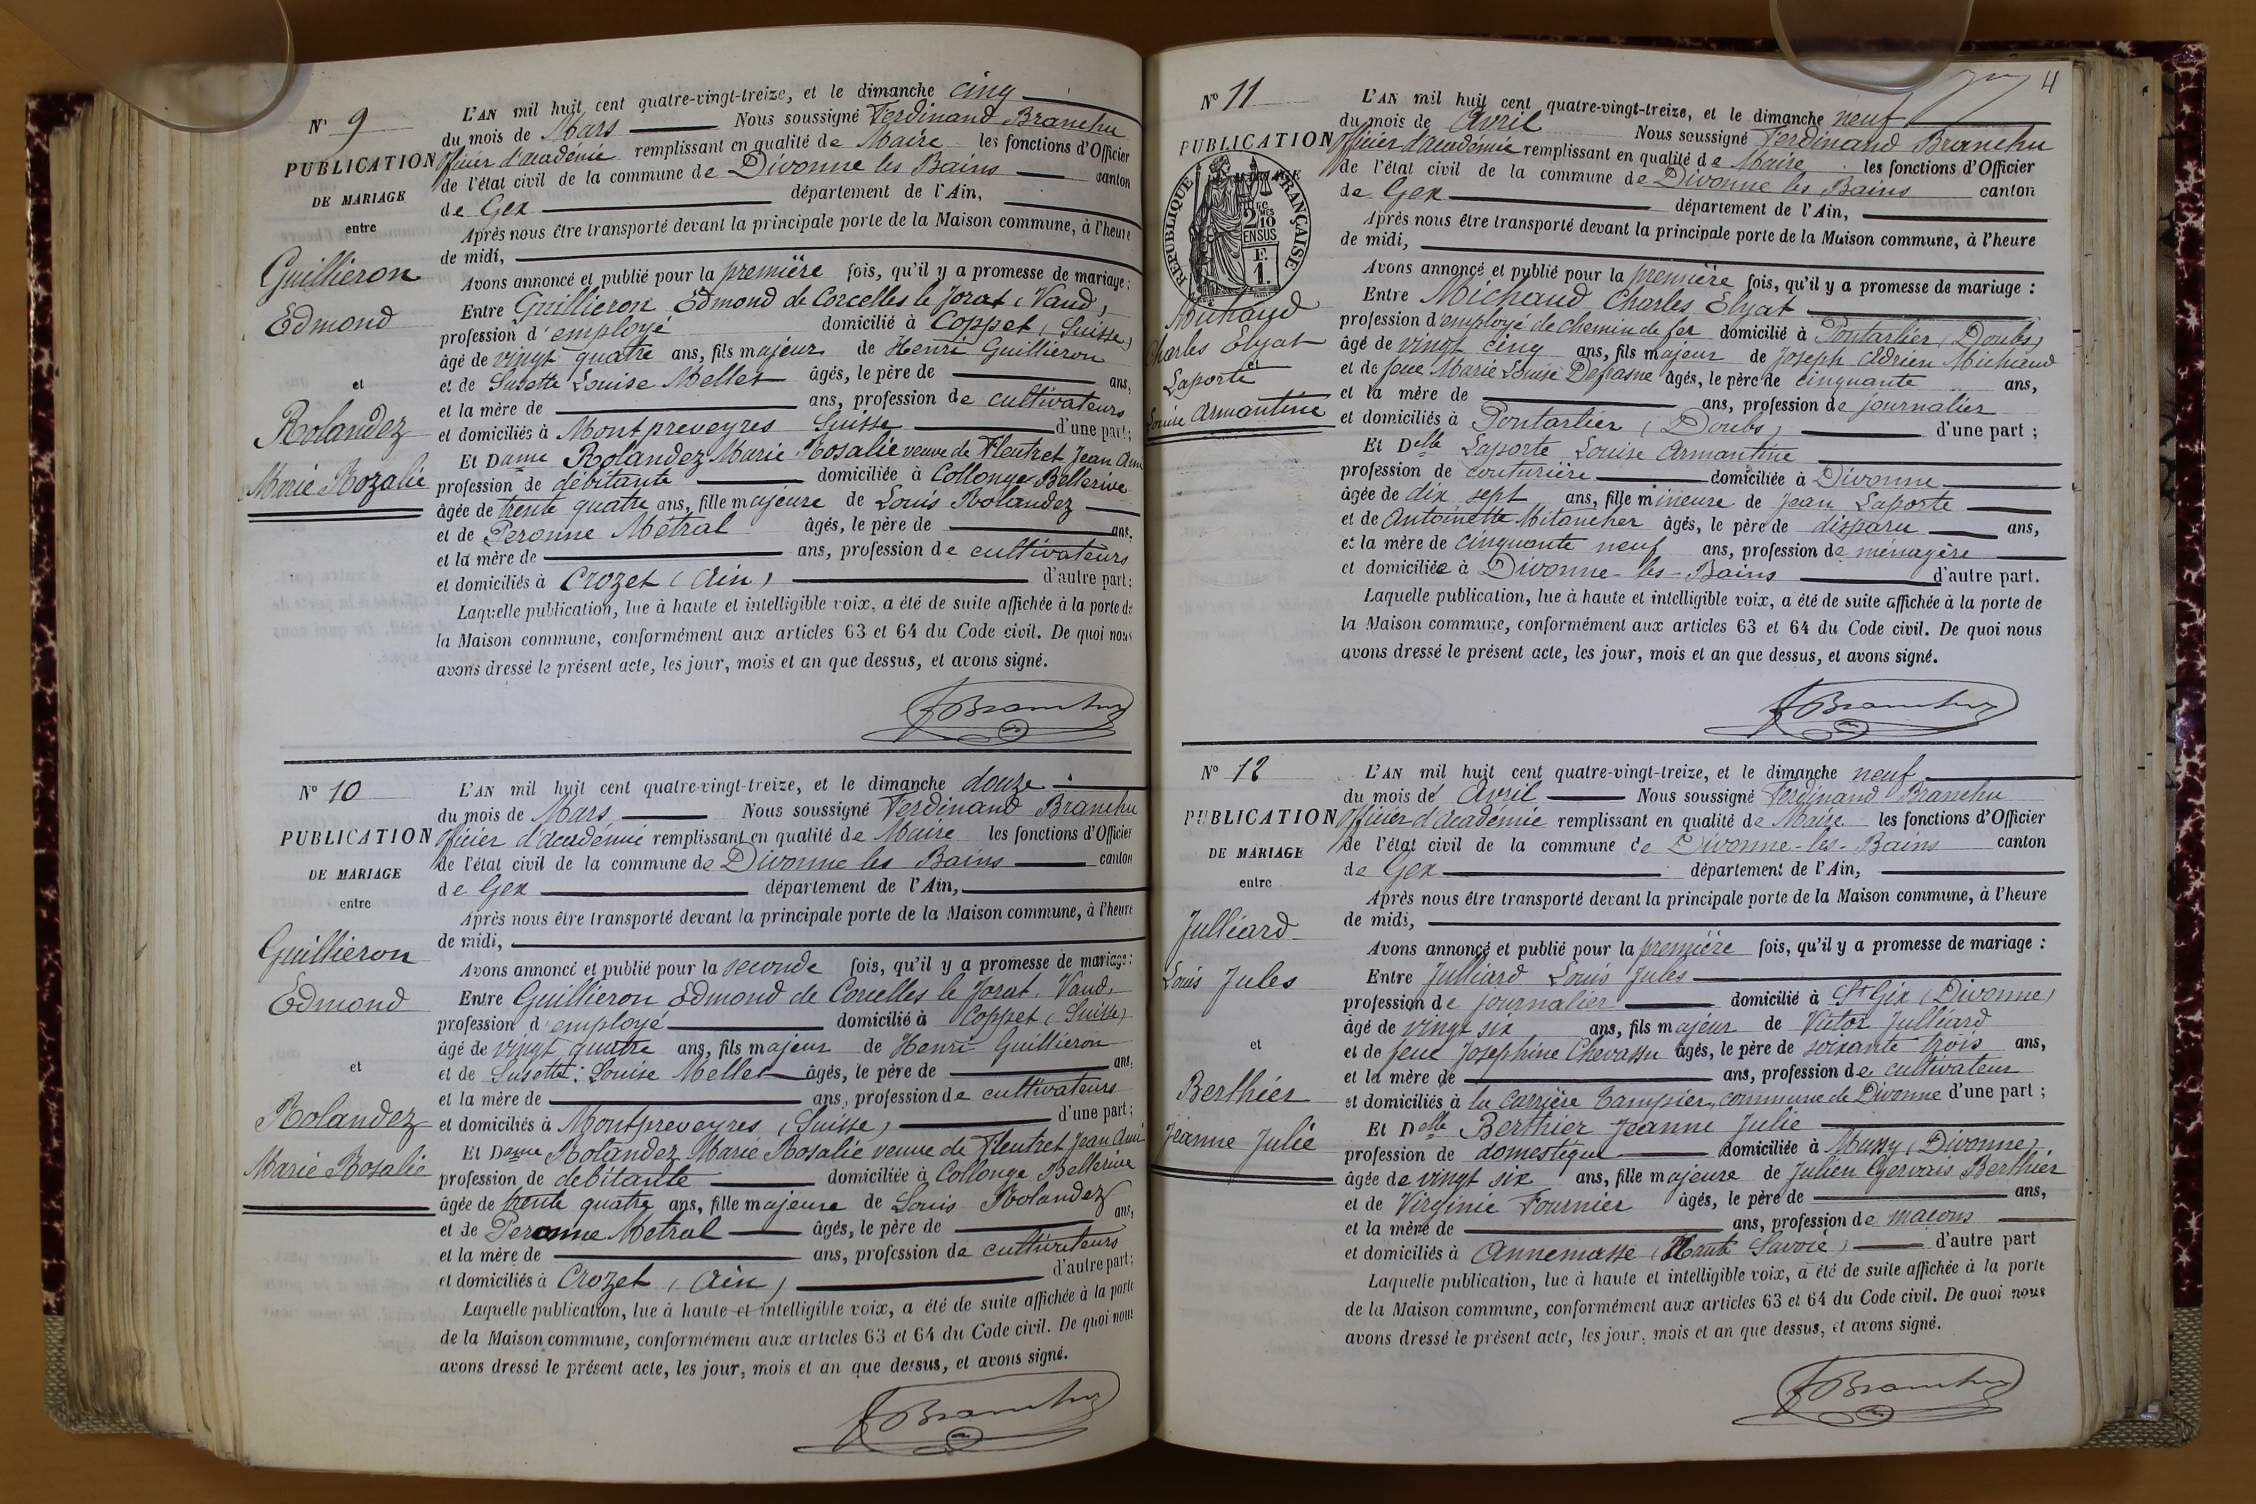 N° 9
PUBLICATION
DE MARIAGE
entre
Guillieron
Edmond
et
Rolandez
Marie Rozalie
L'AN mil huit cent quatre-vingt-treize, et le dimanche cinq
du mois de Mars Nous soussigné Ferdinand Branchu
Officier d'académie remplissant en qualité de Maire les fonctions d'Officier
de l'état civil de la commune de Divonne les Bains canton
de Gex département de l'Ain,
Après nous être transporté devant la principale porte de la Maison commune, à l'heure
de midi,
Avons annoncé et publié pour la première fois, qu'il y a promesse de mariage :
Entre Guillieron Edmond de Corcelles le Jorat (Vaud)
profession d'employé domicilié à Coppet (Suisse)
âgé de vingt quatre ans, fils majeur de Henri Guillieron
et de Susette Louise Mellet âgés, le père de ans,
et la mère de ans, profession de cultivateurs
et domiciliés à Montpreveyres Suisse d'une part ;
Et Dame Rolandez Marie Rosalie veuve de Fleutret Jean Ami
profession de débitante domiciliée à Collonge Bellerive
âgée de trente quatre ans, fille majeure de Louis Rolandez
et de Peronne Métral âgés, le père de ans,
et la mère de ans, profession de cultivateurs
et domiciliés à Crozet (Ain) d'autre part ;
Laquelle publication, lue à haute et intelligible voix, a été de suite affichée à la porte de
la Maison commune, conformément aux articles 63 et 64 du Code civil. De quoi nous
avons dressé le présent acte, les jour, mois et an que dessus, et avons signé.
FBranchu
N° 10
PUBLICATION
DE MARIAGE
entre
Guillieron
Edmond
et
Rolandez
Marie Rosalie
L'AN mil huit cent quatre-vingt-treize, et le dimanche douze
du mois de Mars Nous soussigné Ferdinand Branchu
Officier d'académie remplissant en qualité de Maire les fonctions d'Officier
de l'état civil de la commune de Divonne les Bains canton
de Gex département de l'Ain,
Après nous être transporté devant la principale porte de la Maison commune, à l'heure
de midi,
Avons annoncé et publié pour la seconde fois, qu'il y a promesse de mariage :
Entre Guillieron Edmond de Corcelles le Jorat, Vaud,
profession d'employé domicilié à Coppet (Suisse)
âgé de vingt quatre ans, fils majeur de Henri Guillieron
et de Susette Louise Mellet âgés, le père de ans,
et la mère de ans, profession de cultivateurs
et domiciliés à Montpreveyres (Suisse) d'une part ;
Et Dame Rolandez Marie Rosalie veuve de Fleutret Jean Ami
profession de débitante domiciliée à Collonge Bellerive
âgée de trente quatre ans, fille majeure de Louis Rolandez
et de Peronne Métral âgés, le père de ans,
et la mère de ans, profession de cultivateurs
et domiciliés à Crozet (Ain) d'autre part ;
Laquelle publication, lue à haute et intelligible voix, a été de suite affichée à la porte
de la Maison commune, conformément aux articles 63 et 64 du Code civil. De quoi nous
avons dressé le présent acte, les jour, mois et an que dessus, et avons signé.
FBranchu
4
N° 11
PUBLICATION
RÉPUBLIQUE FRANÇAISE
2/10
EN SUS
F.
1.
Michaud
Charles Elyat
et
Laporte
Louise Armantine
L'AN mil huit cent quatre-vingt-treize, et le dimanche neuf
du mois de Avril Nous soussigné Ferdinand Branchu
Officier d'académie remplissant en qualité de Maire les fonctions d'Officier
de l'état civil de la commune de Divonne les Bains canton
de Gex département de l'Ain,
Après nous être transporté devant la principale porte de la Maison commune, à l'heure
de midi,
Avons annoncé et publié pour la première fois, qu'il y a promesse de mariage :
Entre Michaud Charles Elyat
profession d'employé de chemin de fer domicilié à Pontarlier (Doubs)
âgé de vingt cinq ans, fils majeur de Joseph Adrien Michaud
et de feue Marie Louise âgés, le père de cinquante ans,
et la mère de ans, profession de journalier
et domiciliés à Pontarlier (Doubs) d'une part ;
Et Delle Laporte Louise Armantine
profession de couturière domiciliée à Divonne
âgée de dix sept ans, fille mineure de Jean Laporte
et de Antoinette Mitancher âgés, le père de disparu ans,
et la mère de cinquante neuf ans, profession de ménagère
et domiciliée à Divonne-les-Bains d'autre part.
Laquelle publication, lue à haute et intelligible voix, a été de suite affichée à la porte de
la Maison commune, conformément aux articles 63 et 64 du Code civil. De quoi nous
avons dressé le présent acte, les jour, mois et an que dessus, et avons signé.
FBranchu
N° 12
PUBLICATION
DE MARIAGE
entre
Julliard
Louis Jules
et
Berthier
Jeanne Julie
L'AN mil huit cent quatre-vingt-treize, et le dimanche neuf
du mois de Avril Nous soussigné Ferdinand Branchu
Officier d'académie remplissant en qualité de Maire les fonctions d'Officier
de l'état civil de la commune de Divonne-les-Bains canton
de Gex département de l'Ain,
Après nous être transporté devant la principale porte de la Maison commune, à l'heure
de midi,
Avons annoncé et publié pour la première fois, qu'il y a promesse de mariage :
Entre Julliard Louis Jules
profession de journalier domicilié à St Gix (Divonne)
âgé de vingt six ans, fils majeur de Victor Julliard
et de feue Josephine Chevassu âgés, le père de soixante trois ans,
et la mère de ans, profession de cultivateur
et domiciliés à la carrière Tampier, commune de Divonne d'une part ;
Et Delle Berthier Jeanne Julie
profession de domestique domiciliée à Mussy (Divonne)
âgée de vingt six ans, fille majeure de Julien Gervais Berthier
et de Virginie Fournier âgés, le père de ans,
et la mère de ans, profession de maçons
et domiciliés à Annemasse (Haute Savoie) d'autre part
Laquelle publication, lue à haute et intelligible voix, a été de suite affichée à la porte
de la Maison commune, conformément aux articles 63 et 64 du Code civil. De quoi nous
avons dressé le présent acte, les jour, mois et an que dessus, et avons signé.
FBranchu